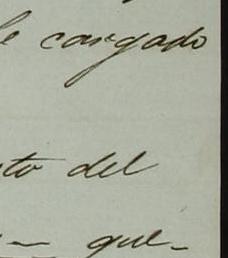 le cargado
to del
que-